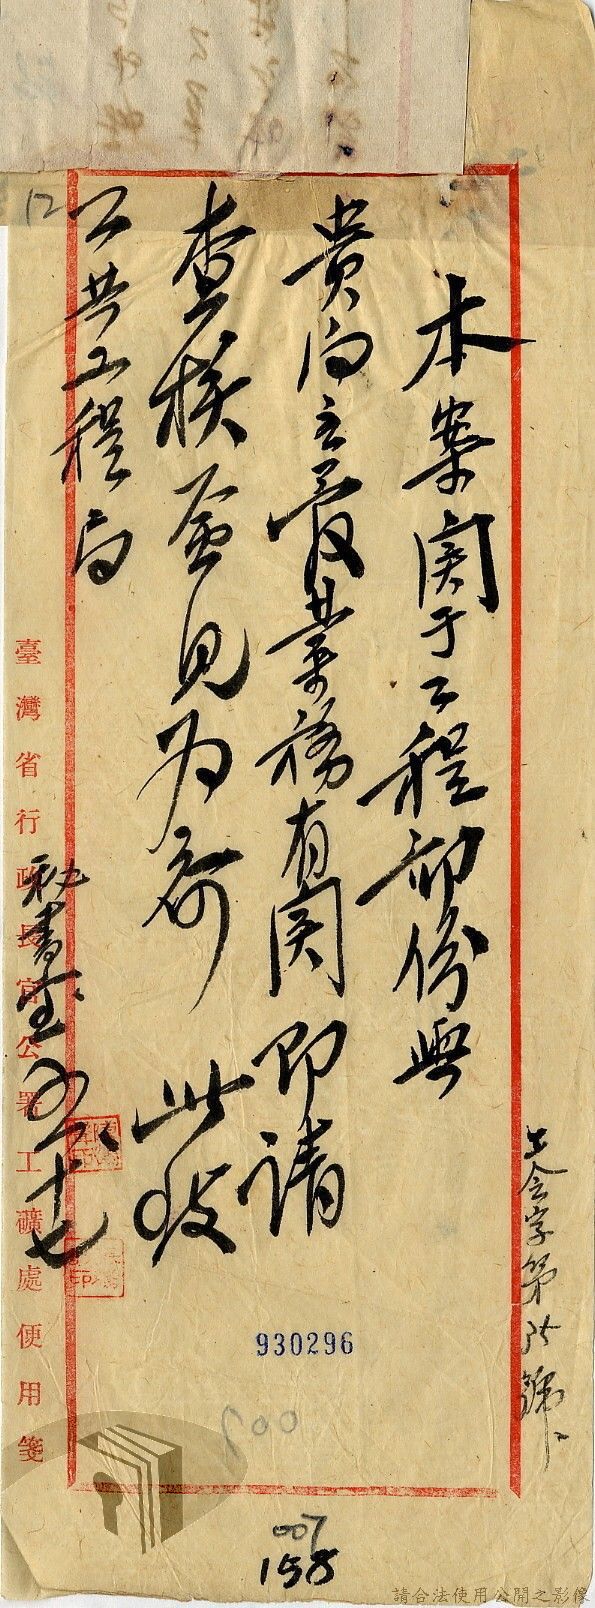 本案関于工程部份與
貴局主管業務有関即請
查核簽見為荷 此致
公共工程局
秘書室 五、十七
臺灣省行政長官公署工礦處便用箋
工会字第 號
930296
12
007
158
請合法使用公開之影像